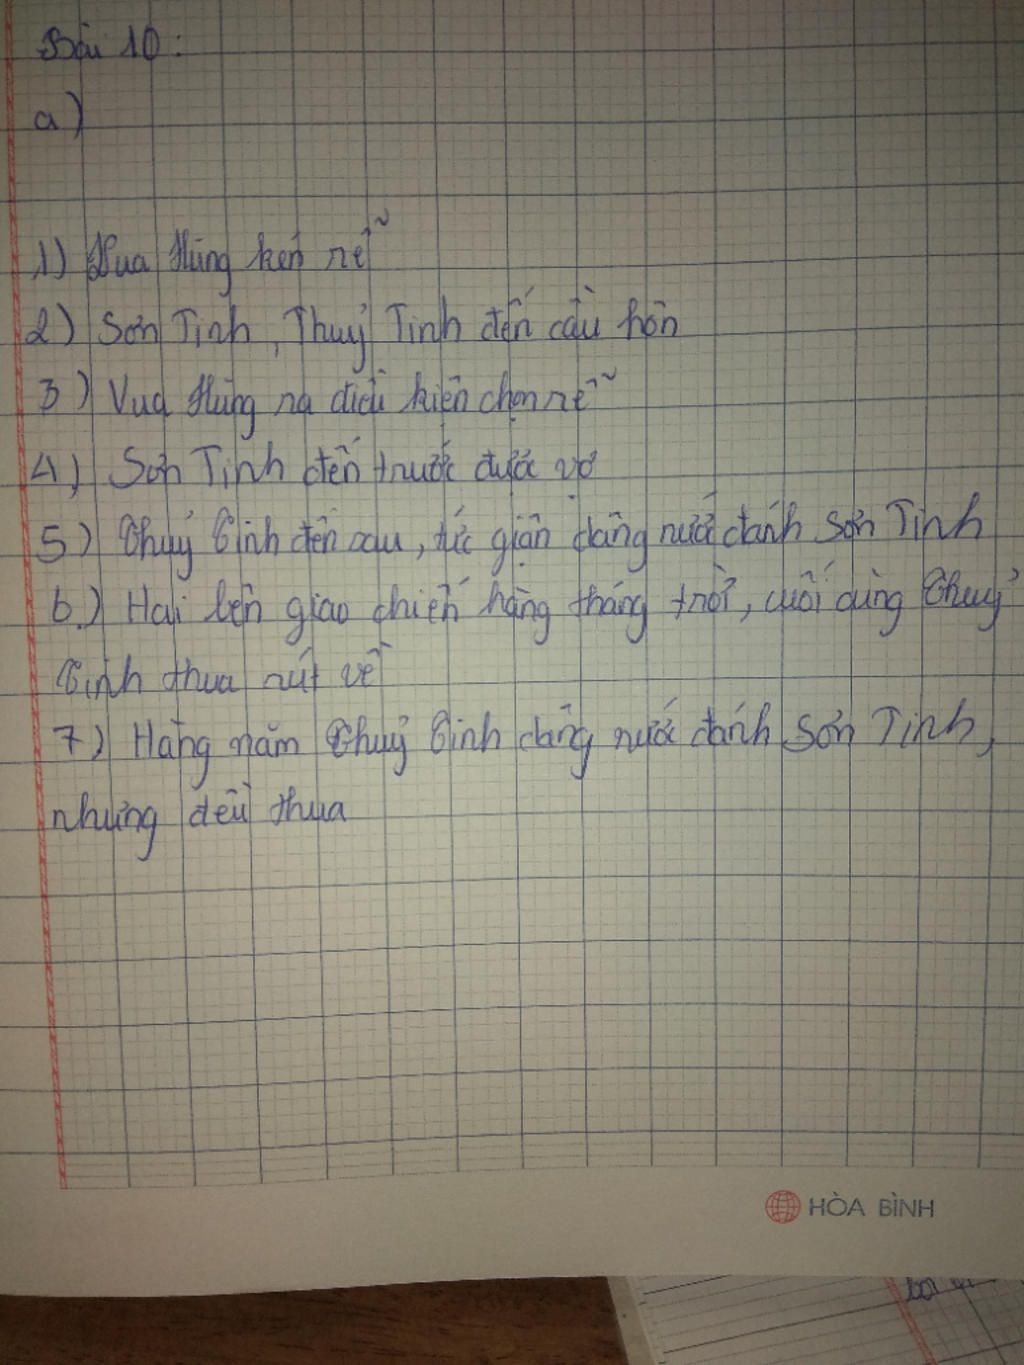 Bài 10:
a)
1) Vua Hùng kén rễ
2) Sơn Tinh, Thuỷ Tinh đến cầu hôn
3) Vua Hùng ra điều kiện chọn rễ
4) Sơn Tinh đến trước được vợ
5) Thuỷ Tinh đến sau, tức giận dâng nước đánh Sơn Tinh
6) Hai bên giao chiến hàng tháng trời, cuối cùng Thuỷ
Tinh thua rút về
7) Hàng năm Thuỷ Tinh dâng nước đánh Sơn Tinh,
nhưng đều thua
HÒA BÌNH